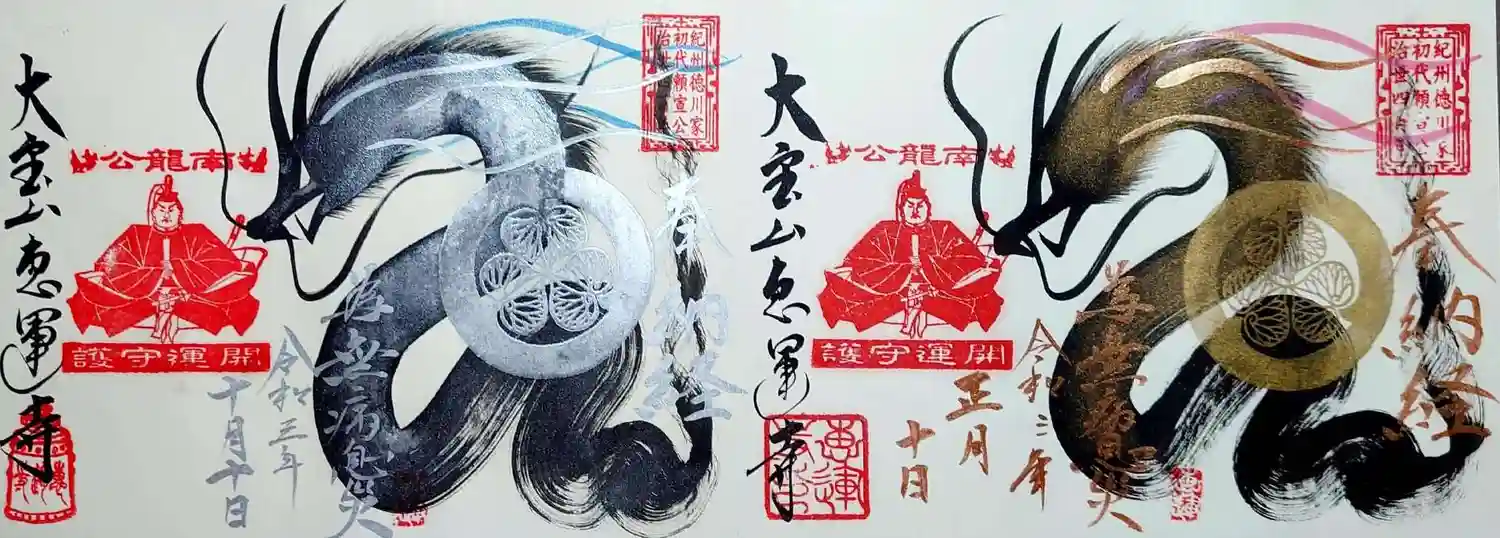 紀州徳川家
初代頼宣公
奉納経
為無病息災
令和三年
十月十日
南龍公
開運守護
大宝山恵運寺
紀州徳川家
初代頼宣公
治世四百年
奉納経
為無病息災
令和三年
正月
十日
南龍公
開運守護
大宝山恵運寺